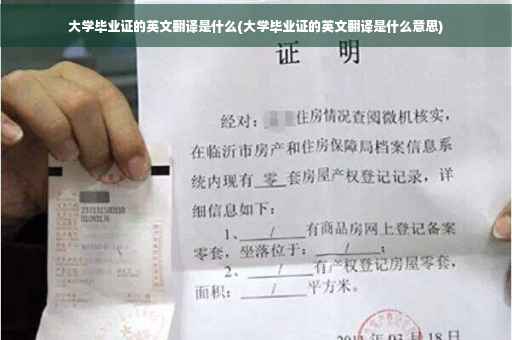 大学毕业证的英文翻译是什么(大学毕业证的英文翻译是什么意思)
证 明
经对: 住房情况查阅微机核实,
在临沂市房产和住房保障局档案信息系
统内现有 零 套房屋产权登记记录,详
细信息如下:
1、 / 有商品房网上登记备案
零套,坐落位于: / ;
2、 / 有产权登记房屋零套,
面积: / 平方米。
03 月 18 日